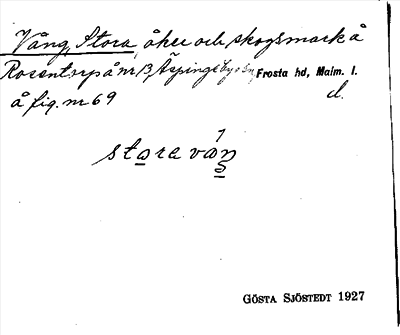 Vång, Stora, åker och skogsmark å
Rosentorp å nr 13, Äspinge by o sn, Frosta hd, Malm. l.
å fig. nr 69 d.
stora våŋ
GÖSTA SJÖSTEDT 1927